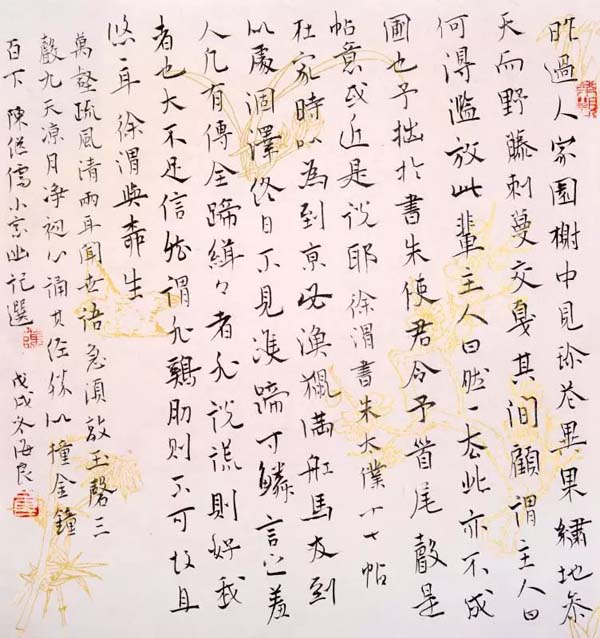 昨過人家園榭中見珍花異果繡地參
天而野藤刺蔓交戛其間顧謂主人曰
何得濫放此輩主人曰然一去此亦不成
圃也予拙於書朱使君令予首尾是
帖意或近是說耶徐渭書朱太僕十七帖
在家時以為到京必漁獵滿船馬及到
似處涸澤終日不見隻蹄寸鱗言之羞
人凡有傳全蹄緝々者非說謊則好我
者也大不足信然謂非雞肋則不可故且
悠々耳 徐渭與柳生
萬壑疏風清兩耳聞世語急須敲玉磬三
聲九天涼月淨初心誦其經勝似撞金鐘
百下 陳繼儒小窗幽記選 戊戌冬海良